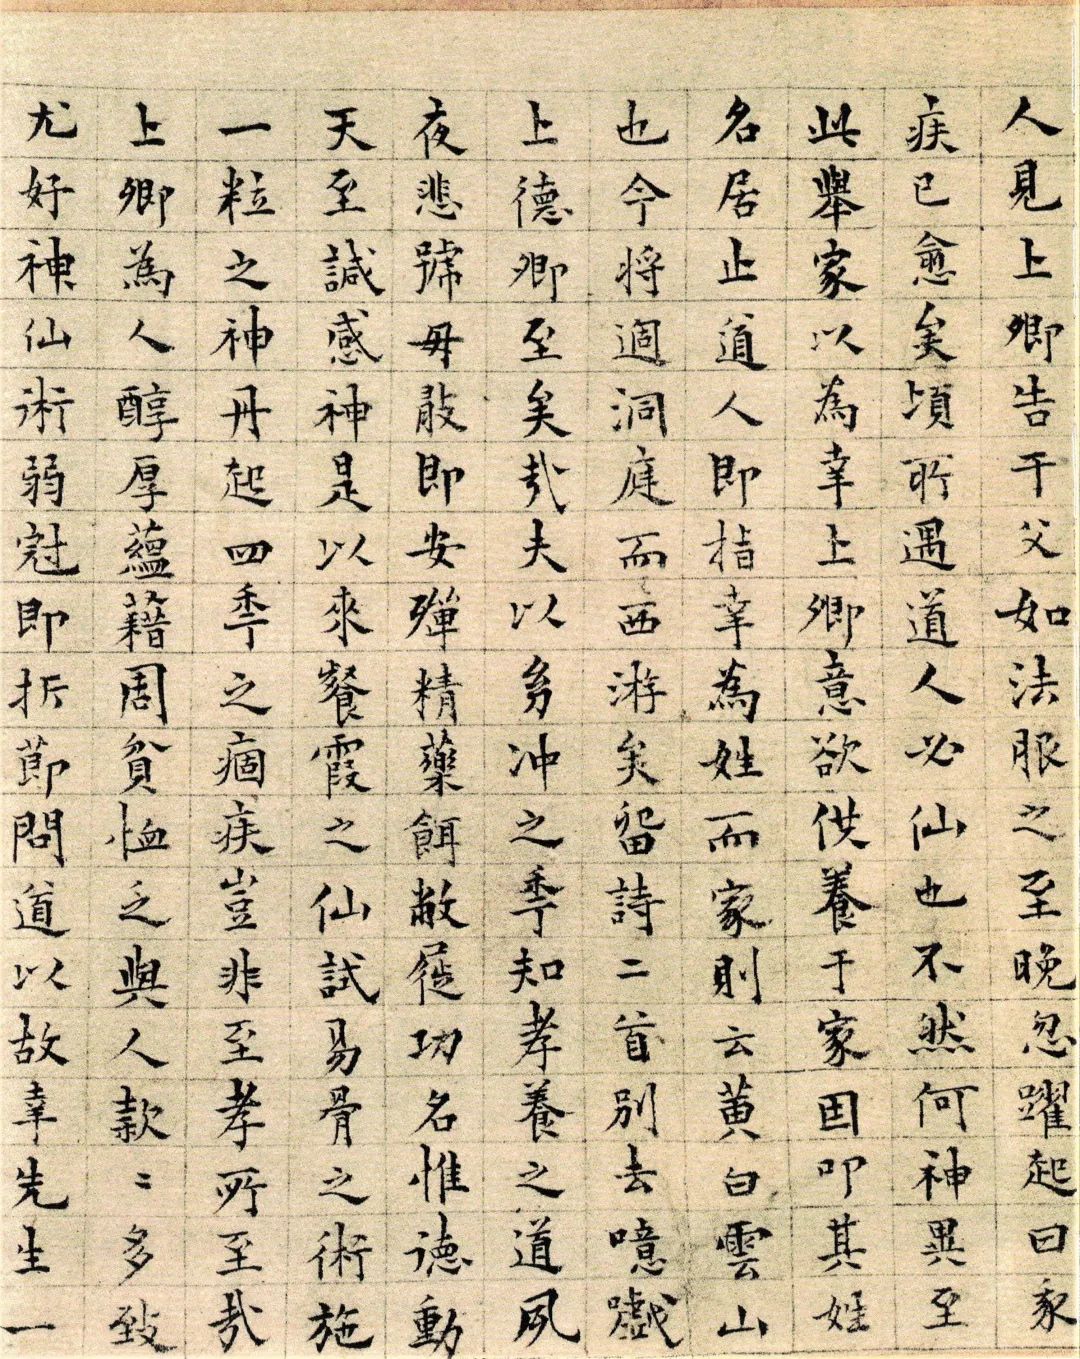 人見上卿告于父如法服之至晚忽躍起曰我
疾已愈矣頃所遇道人必仙也不然何神異至
此舉家以為幸上卿意欲供養于家因叩其姓
名居止道人即指幸為姓而家則云黄白雲山
也今将適洞庭而西游矣留詩二首別去噫嚱
上德卿至矣哉夫以幼冲之秊知孝養之道夙
夜悲號毋敢即安殫精藥餌敝屣功名惟德動
天至諴感神是以來餐霞之仙試易骨之術施
一粒之神丹起四秊之痼疾豈非至孝所至哉
上卿為人醇厚蘊藉周貧恤乏與人款〻多致
尤好神仙術弱冠即折節問道以故幸先生一